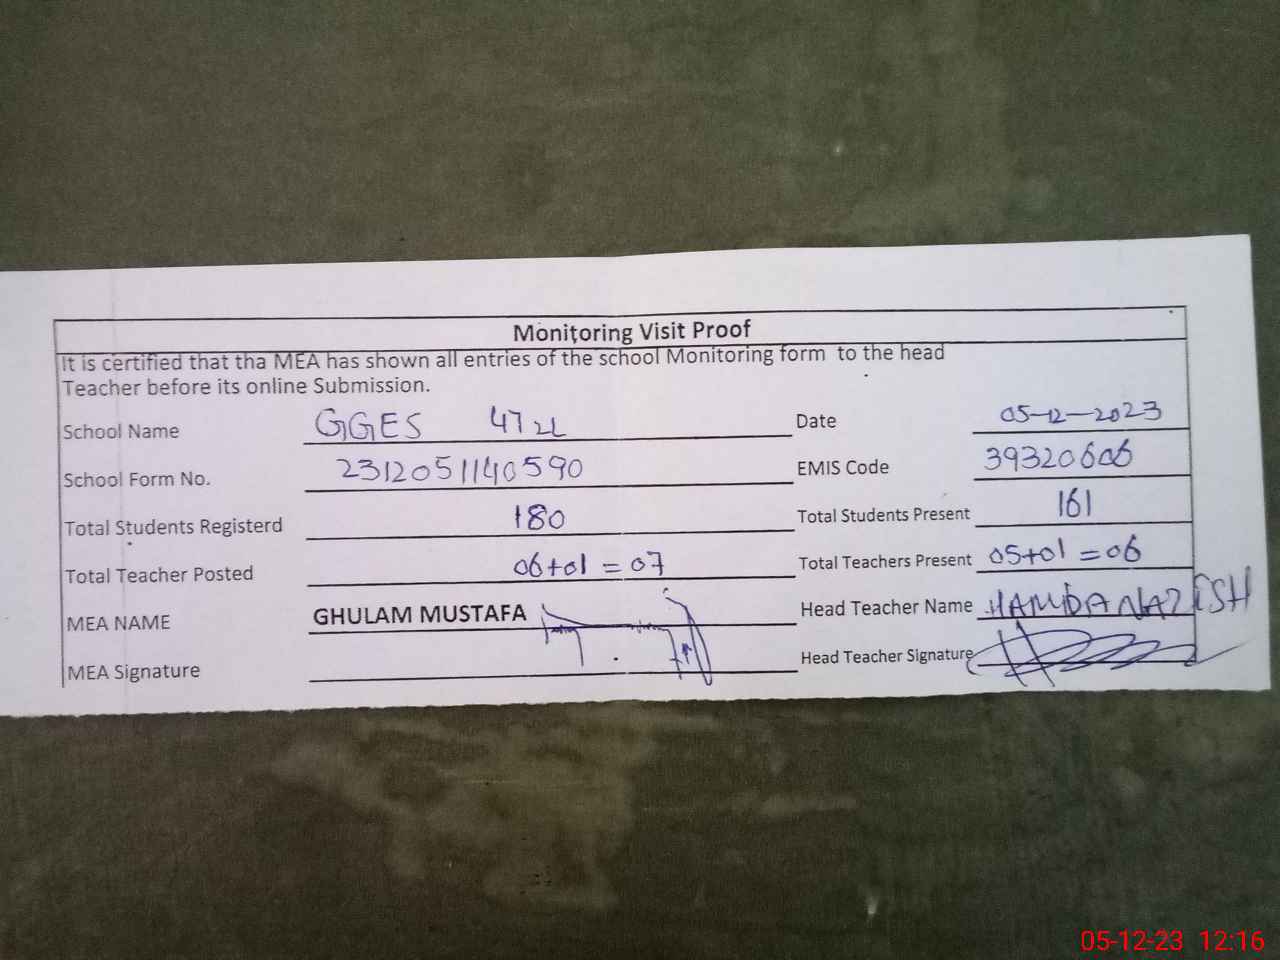 Monitoring Visit Proof
It is certified that tha MEA has shown all entries of the school Monitoring form to the head
Teacher before its online Submission.
School Name GGES 47 2L Date 05-12-2023
School Form No. 2312051140590 EMIS Code 39320606
Total Students Registerd 180 Total Students Present 161
Total Teacher Posted 06+01=07 Total Teachers Present 05+01=06
MEA NAME GHULAM MUSTAFA Head Teacher Name HAMDA NAZISH
MEA Signature Head Teacher Signature
05-12-23 12:16